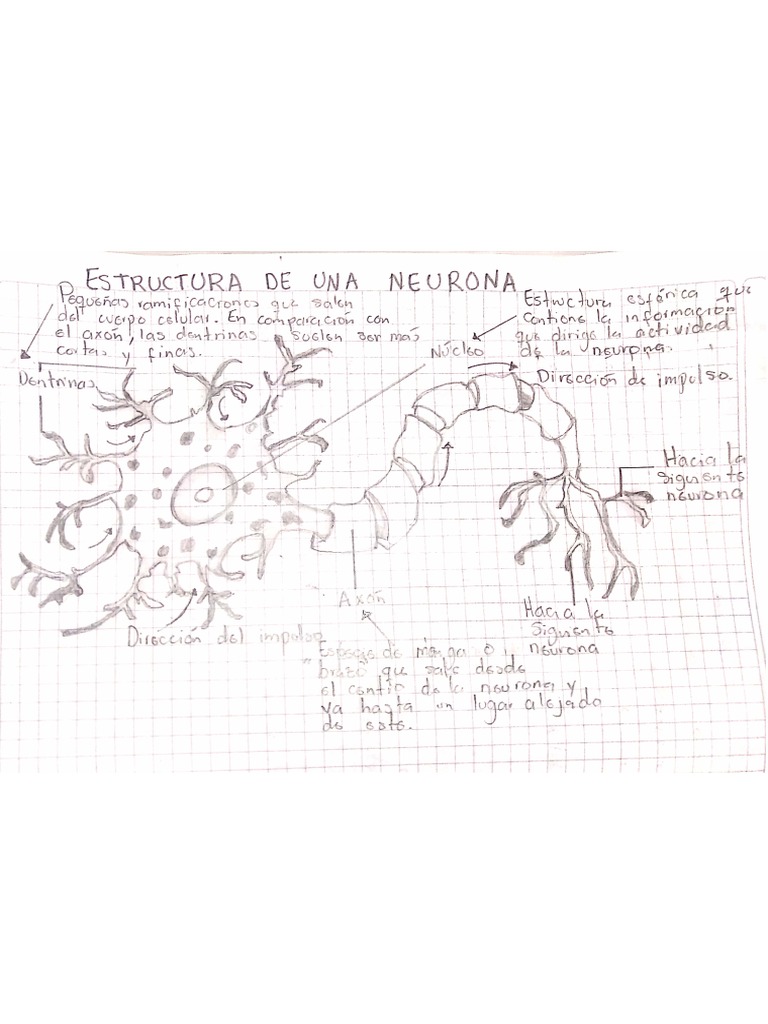 ESTRUCTURA DE UNA NEURONA
Pequeñas ramificaciones que salen
del cuerpo celular. En comparación con
el axón, las dentrinas suelen ser más
cortas y finas.
Dentrinas
Estructura esférica que
contiene la información
que dirige la actividad
de la neurona.
Núcleo
Dirección de impulso.
Hacia la
siguente
neurona
Axón
Hacia la
siguente
neurona
Dirección del impulso
"Especie de manga o
brazo" que sale desde
el de la neurona y
va hasta un lugar alejado
de este.